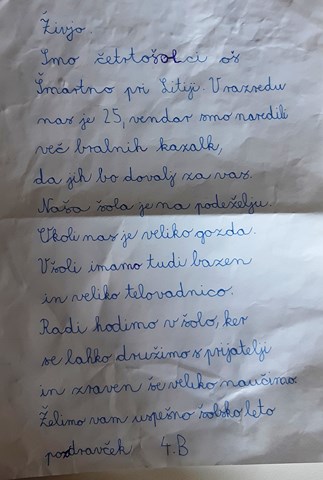 Živjo.
Smo četrtošolci oš
Šmartno pri Litiji. V razredu
nas je 25, vendar smo naredili
več bralnih kazalk,
da jih bo dovolj za vas.
Naša šola je na podeželju.
Okoli nas je veliko gozda.
V šoli imamo tudi bazen
in veliko telovadnico.
Radi hodimo v šolo, ker
se lahko družimo s prijatelji
in zraven še veliko naučimo.
Želimo vam uspešno šolsko leto
pozdravček 4.B